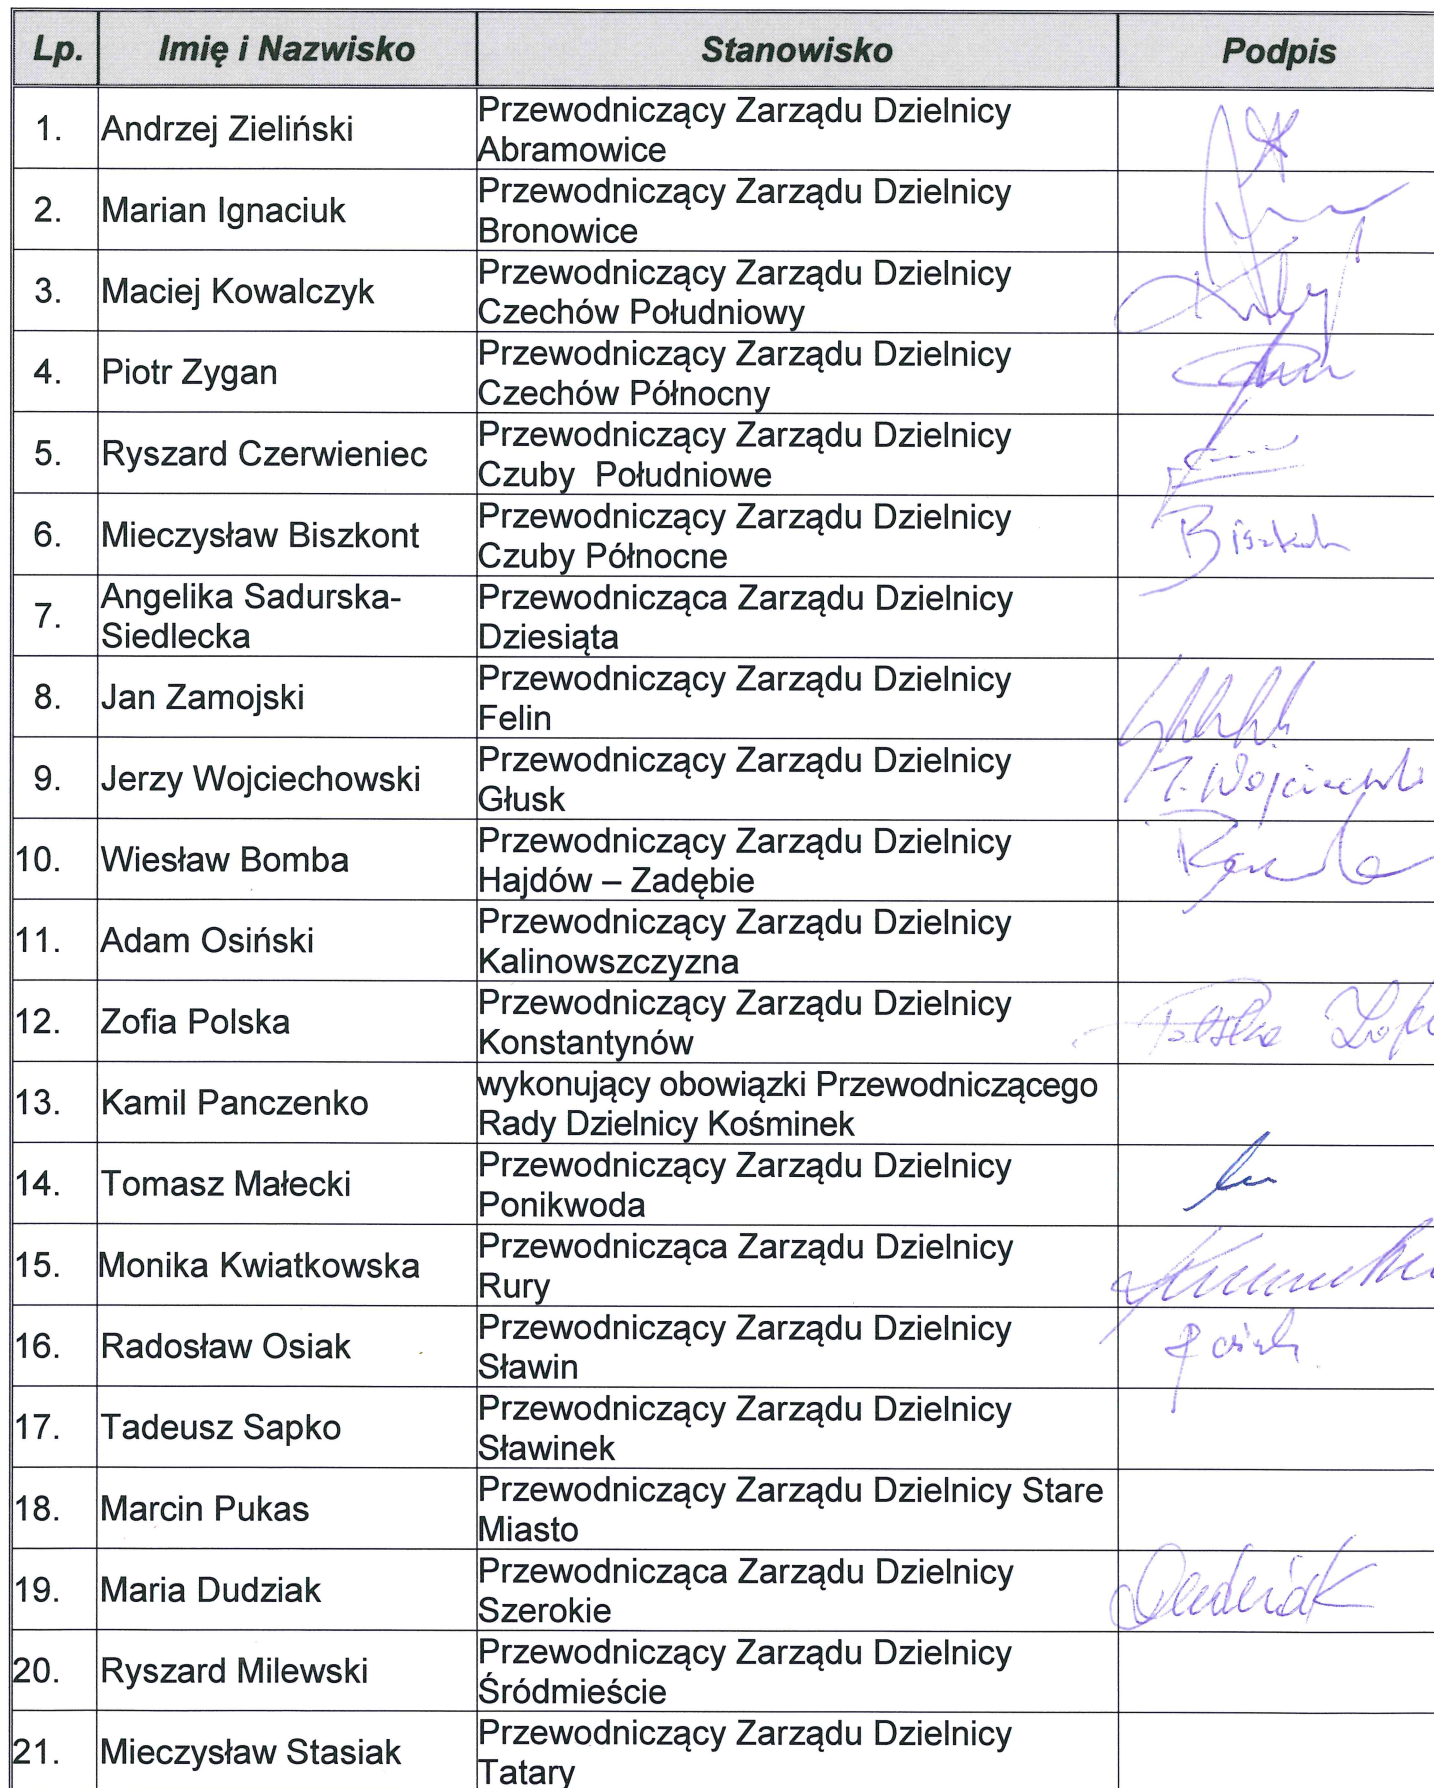 Lp. Imię i Nazwisko Stanowisko Podpis
1. Andrzej Zieliński Przewodniczący Zarządu Dzielnicy
Abramowice
2. Marian Ignaciuk Przewodniczący Zarządu Dzielnicy
Bronowice
3. Maciej Kowalczyk Przewodniczący Zarządu Dzielnicy
Czechów Południowy
4. Piotr Zygan Przewodniczący Zarządu Dzielnicy
Czechów Północny
5. Ryszard Czerwieniec Przewodniczący Zarządu Dzielnicy
Czuby Południowe
6. Mieczysław Biszkont Przewodniczący Zarządu Dzielnicy
Czuby Północne
7. Angelika Sadurska-
Siedlecka Przewodnicząca Zarządu Dzielnicy
Dziesiąta
8. Jan Zamojski Przewodniczący Zarządu Dzielnicy
Felin
9. Jerzy Wojciechowski Przewodniczący Zarządu Dzielnicy
Głusk
10. Wiesław Bomba Przewodniczący Zarządu Dzielnicy
Hajdów – Zadębie
11. Adam Osiński Przewodniczący Zarządu Dzielnicy
Kalinowszczyzna
12. Zofia Polska Przewodniczący Zarządu Dzielnicy
Konstantynów
13. Kamil Panczenko wykonujący obowiązki Przewodniczącego
Rady Dzielnicy Kośminek
14. Tomasz Małecki Przewodniczący Zarządu Dzielnicy
Ponikwoda
15. Monika Kwiatkowska Przewodnicząca Zarządu Dzielnicy
Rury
16. Radosław Osiak Przewodniczący Zarządu Dzielnicy
Sławin
17. Tadeusz Sapko Przewodniczący Zarządu Dzielnicy
Sławinek
18. Marcin Pukas Przewodniczący Zarządu Dzielnicy Stare
Miasto
19. Maria Dudziak Przewodnicząca Zarządu Dzielnicy Dudziak
Szerokie
20. Ryszard Milewski Przewodniczący Zarządu Dzielnicy
Śródmieście
21. Mieczysław Stasiak Przewodniczący Zarządu Dzielnicy
Tatary